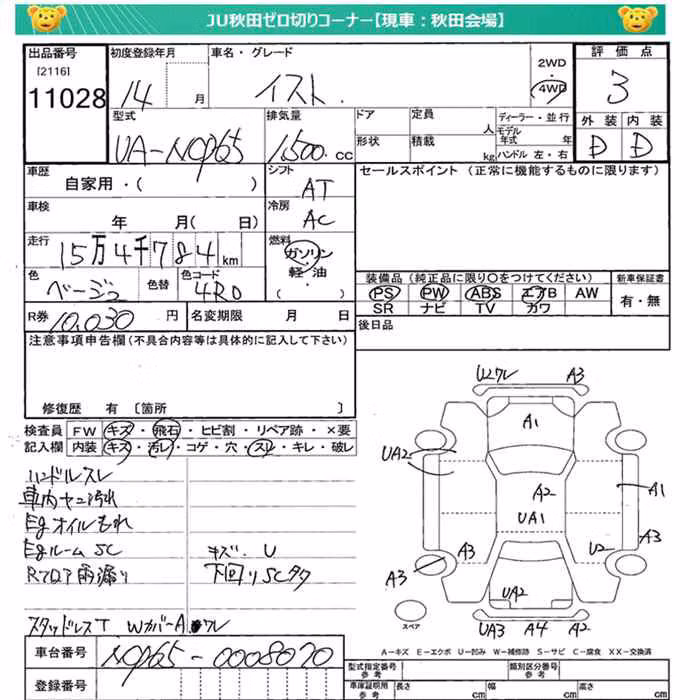 JU秋田ゼロ切りコーナー【現車：秋田会場】
出品番号
[2116]
11028
初度登録年月
14 月
車名・グレード
イスト.
2WD
・
4WD
評価点
3
外装 内装
D D
型式
UA-NCP65
排気量
1500.cc
ドア
定員
人
形状
積載
kg
ディーラー・並行
モデル年式 年
ハンドル 左・右
車歴
自家用・( )
シフト
AT
車検
年 月( 日)
冷房
AC
走行
15万4千784km
燃料
ガソリン・
軽油・
( )
色
ベージュ
色替
色コード
4R0
R券 10,030円
名変期限 月 日
セールスポイント (正常に機能するものに限ります)
装備品 (純正品に限り○をつけてください)
PS PW ABS エアB AW
SR ナビ TV カワ
新車保証書
有・無
後日品
注意事項申告欄(不具合内容等は具体的に記入して下さい)
修復歴 有 [箇所 ]
検査員記入欄
FW キズ・飛石・ヒビ割・リペア跡・×要
内装 キズ・汚レ・コゲ・穴・スレ・キレ・破レ
ハンドルスレ
車内ヤニ汚れ
Egオイルもれ
Egルーム SC
キズ.U
Rフロア雨漏り
下回りSCタク
スタッドレスT WカバーA ワレ
U2ワレ A3
A1
UA2
A2
A1
UA1
A3
A3
U2
A3
UA2
UA3 A4 A2
スペア
A－キズ E－エクボ U－凹み W－補修跡 S－サビ C－腐食 XX－交換済
車台番号
NCP65-0008070
登録番号
型式指定番号
参考
類別区分番号
参考
車庫証明用
参考
長さ cm
幅 cm
高さ cm